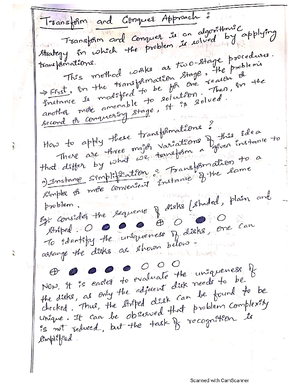 Transform and Conquer Approach :
Transform and Conquer is an algorithmic
strategy in which the problem is solved by applying
transformations.
This method works as two-stage procedures.
→ First, in the transformation stage, the problem's
instance is modified to be for one reason or
another more amenable to solution. Then, in the
second or conquering stage, it is solved.
How to apply these transformations ?
There are three major variations of this idea
that differ by what we transform a given instance to
Instance Simplification : Transformation to a
simpler or more convenient instance of the same
problem.
Eg: Consider the sequence of disks (shaded, plain and
striped.
To identify the uniqueness of disks, one can
arrange the disks as shown below.
Now, it is easier to evaluate the uniqueness of
the disks, as only the adjacent disk needs to be
checked. Thus, the striped disk can be found to be
unique. It can be observed that problem complexity
is not reduced, but the task of recognition is
simplified
Scanned with CamScanner